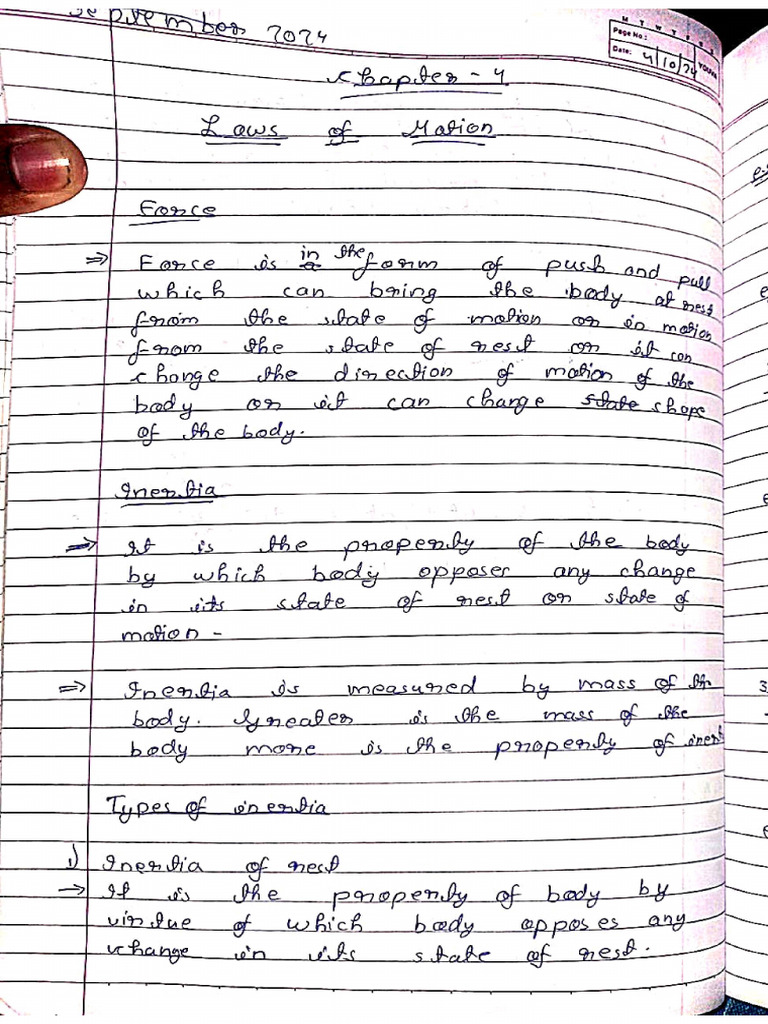 September 2024
M T W T F S S
Page No.:
Date: 4/10/24 YOUVA
Chapter - 4
Laws of Motion
Force
⇒ Force is in the form of push and pull
which can bring the body at rest
from the state of motion or in motion
from the state of rest or it can
change the direction of motion of the
body or it can change state shape
of the body.
Inertia
⇒ It is the property of the body
by which body opposes any change
in its state of rest or state of
motion -
⇒ Inertia is measured by mass of th
body. Greater is the mass of the
body more is the property of inert
Types of inertia
1) Inertia of rest
→ It is the property of body by
virtue of which body opposes any
change in its state of rest.